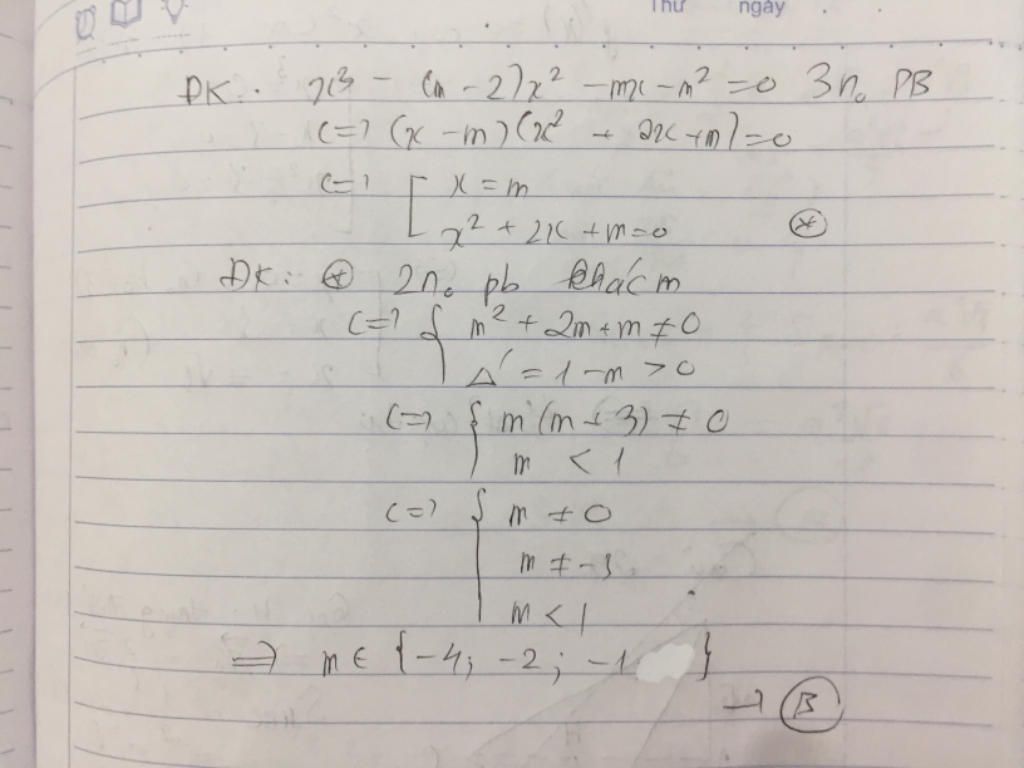 Thứ ngày
ĐK: x³ - (m - 2)x² - mx - m² = 0 3n₀ PB
<=> (x - m)(x² + 2x + m) = 0
<=> [ x = m
x² + 2x + m = 0 (*)
ĐK: (*) 2n₀ pb khác m
<=> { m² + 2m + m ≠ 0
Δ' = 1 - m > 0
<=> { m(m + 3) ≠ 0
m < 1
<=> { m ≠ 0
m ≠ -3
m < 1
=> m ∈ {-4; -2; -1 }
→ (B)